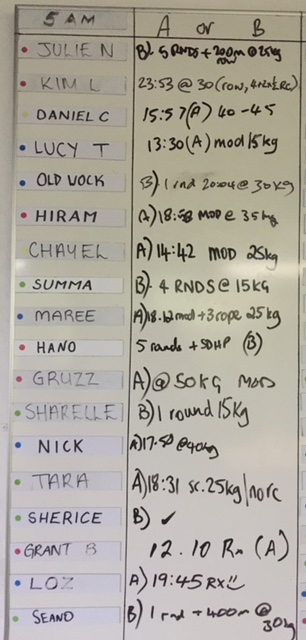 5 AM A or B
JULIE N B) 5 RNDS + 200m @ 25kg
row
KIM L 23:53 @ 30 (row,
DANIEL C 15:57 (A) 40 - 45
LUCY T 13:30 (A) mod 15kg
OLD VOCK B) 1 rnd @ 30kg
HIRAM A) 18:58 MOD @ 35kg
CHAYEL A) 14:42 MOD 25kg
SUMMA B) 4 RNDS @ 15KG
MAREE A) 18.12 mod + 3 rope 25kg
HANO 5 rounds + SDHP (B)
GRUZZ A) @ 50KG MOD
SHARELLE B) 1 round 15kg
NICK A) 17.50 @ 40kg
TARA A) 18:31 sc. 25kg/
SHERICE B) ✓
GRANT B 12.10 Rx (A)
LOZ A) 19:45 RX
SEANO B) 1 rnd + 400m @
30kg